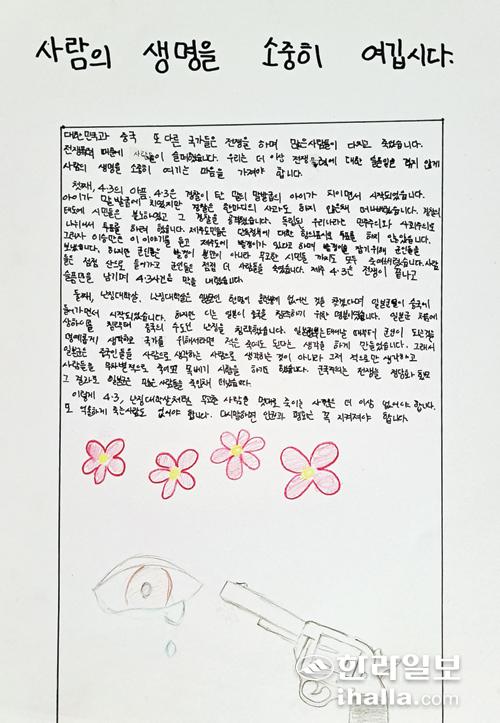 사람의 생명을 소중히 여깁시다.
대한민국과 중국 또 다른 국가들은 전쟁을 하며 많은사람들이 다치고 죽었습니다.
때문에 사람들이 습니다. 우리는 더 이상 전쟁 에 대한 겪지 않게
사람의 생명을 소중히 여기는 마음을 가져야 합니다.
첫째, 4·3의 아픔 4·3은 경찰이 탄 말의 말발굽의 아이가 치이면서 시작되었습니다.
아이가 말발굽에 치였지만 경찰은 한마디의 사과도 하지 않은채 떠나버렸습니다. 경찰의
태도에 시민들은 분노하였고 그 경찰을 습니다. 독립된 우리나라는 민주주의와 사회주의로
나뉘어서 투표를 하려 했습니다. 제주도민들은 에 대한 투표를 하지 않았습니다.
그래서 이승만은 이 이야기를 듣고 제주도에 빨갱이가 있다고 하며 빨갱이를 잡기위해 군인들을
보냈습니다. 하지만 군인들은 빨갱이 뿐만이 아니라 무고한 시민들 까지도 모두 죽여버렸습니다. 사람
들은 점점 산으로 들어가고 군인들은 점점 더 사람들을 죽였습니다. 제주 4·3은 전쟁이 끝나고
슬픔만을 남기며 4·3사건은 막을 내렸습니다.
둘째, 난징대학살, 난징대학살은 일본군 한명이 없어진 것을 찾겠다며 일본군들이 중국에
들어가면서 시작되었습니다. 하지만 이는 일본이 중국을 침략하기 위한 명분이었습니다. 일본군 처음에
상하이를 침략하며 중국의 수도인 난징을 침략했습니다. 일본 태어날 때부터 군인이 되는것을
명예롭게 생각하고 국가를 위해서라면 적은 죽여도 된다는 생각을 하게 만들었습니다. 그래서
일본군은 중국인들을 사람으로 생각하는 것이 아니라 그저 적으로만 생각하고
사람들을 무차별적으로 죽이고 목베기 시합을 하기도 했습니다. 군국주의는 전쟁을 정당화
그 결과로 일본군은 많은 사람들을 죽인채 떠났습니다.
이렇게 4·3, 난징대학살처럼 무고한 사람을 멋대로 죽이는 사람은 더 이상 없어야 합니다.
또 억울하게 죽는사람도 없어야 합니다. 다시말하면 인권과 평화는 꼭 지켜져야 합니다.
한라일보
ihalla.com